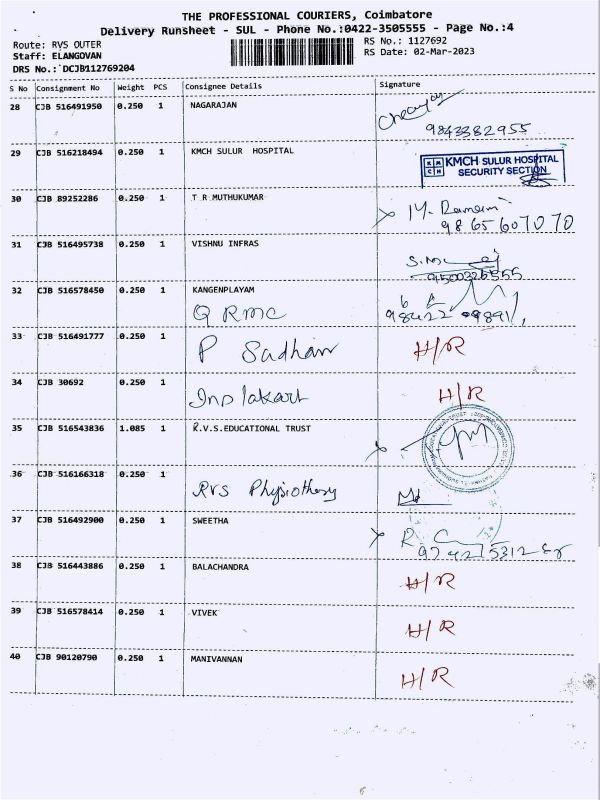 THE PROFESSIONAL COURIERS, Coimbatore
Delivery Runsheet - SUL - Phone No.:0422-3505555 - Page No.:4
Route: RVS OUTER RS No.: 1127692
Staff: ELANGOVAN RS Date: 02-Mar-2023
DRS No.: DCJB112769204
S No Consignment No Weight PCS Consignee Details Signature
28 CJB 516491950 0.250 1 NAGARAJAN
9843382955
29 CJB 516218494 0.250 1 KMCH SULUR HOSPITAL
KMCH SULUR HOSPITAL
SECURITY SECTION
30 CJB 89252286 0.250 1 T R MUTHUKUMAR
9865607070
31 CJB 516495738 0.250 1 VISHNU INFRAS
9500326555
32 CJB 516578450 0.250 1 KANGENPLAYAM
Q RMC
33 CJB 516491777 0.250 1 P Sadhan H/R
34 CJB 30692 0.250 1 H/R
35 CJB 516543836 1.085 1 R.V.S.EDUCATIONAL TRUST
36 CJB 516166318 0.250 1
RVS
37 CJB 516492900 0.250 1 SWEETHA
38 CJB 516443886 0.250 1 BALACHANDRA H/R
39 CJB 516578414 0.250 1 VIVEK H/R
40 CJB 90120790 0.250 1 MANIVANNAN H/R